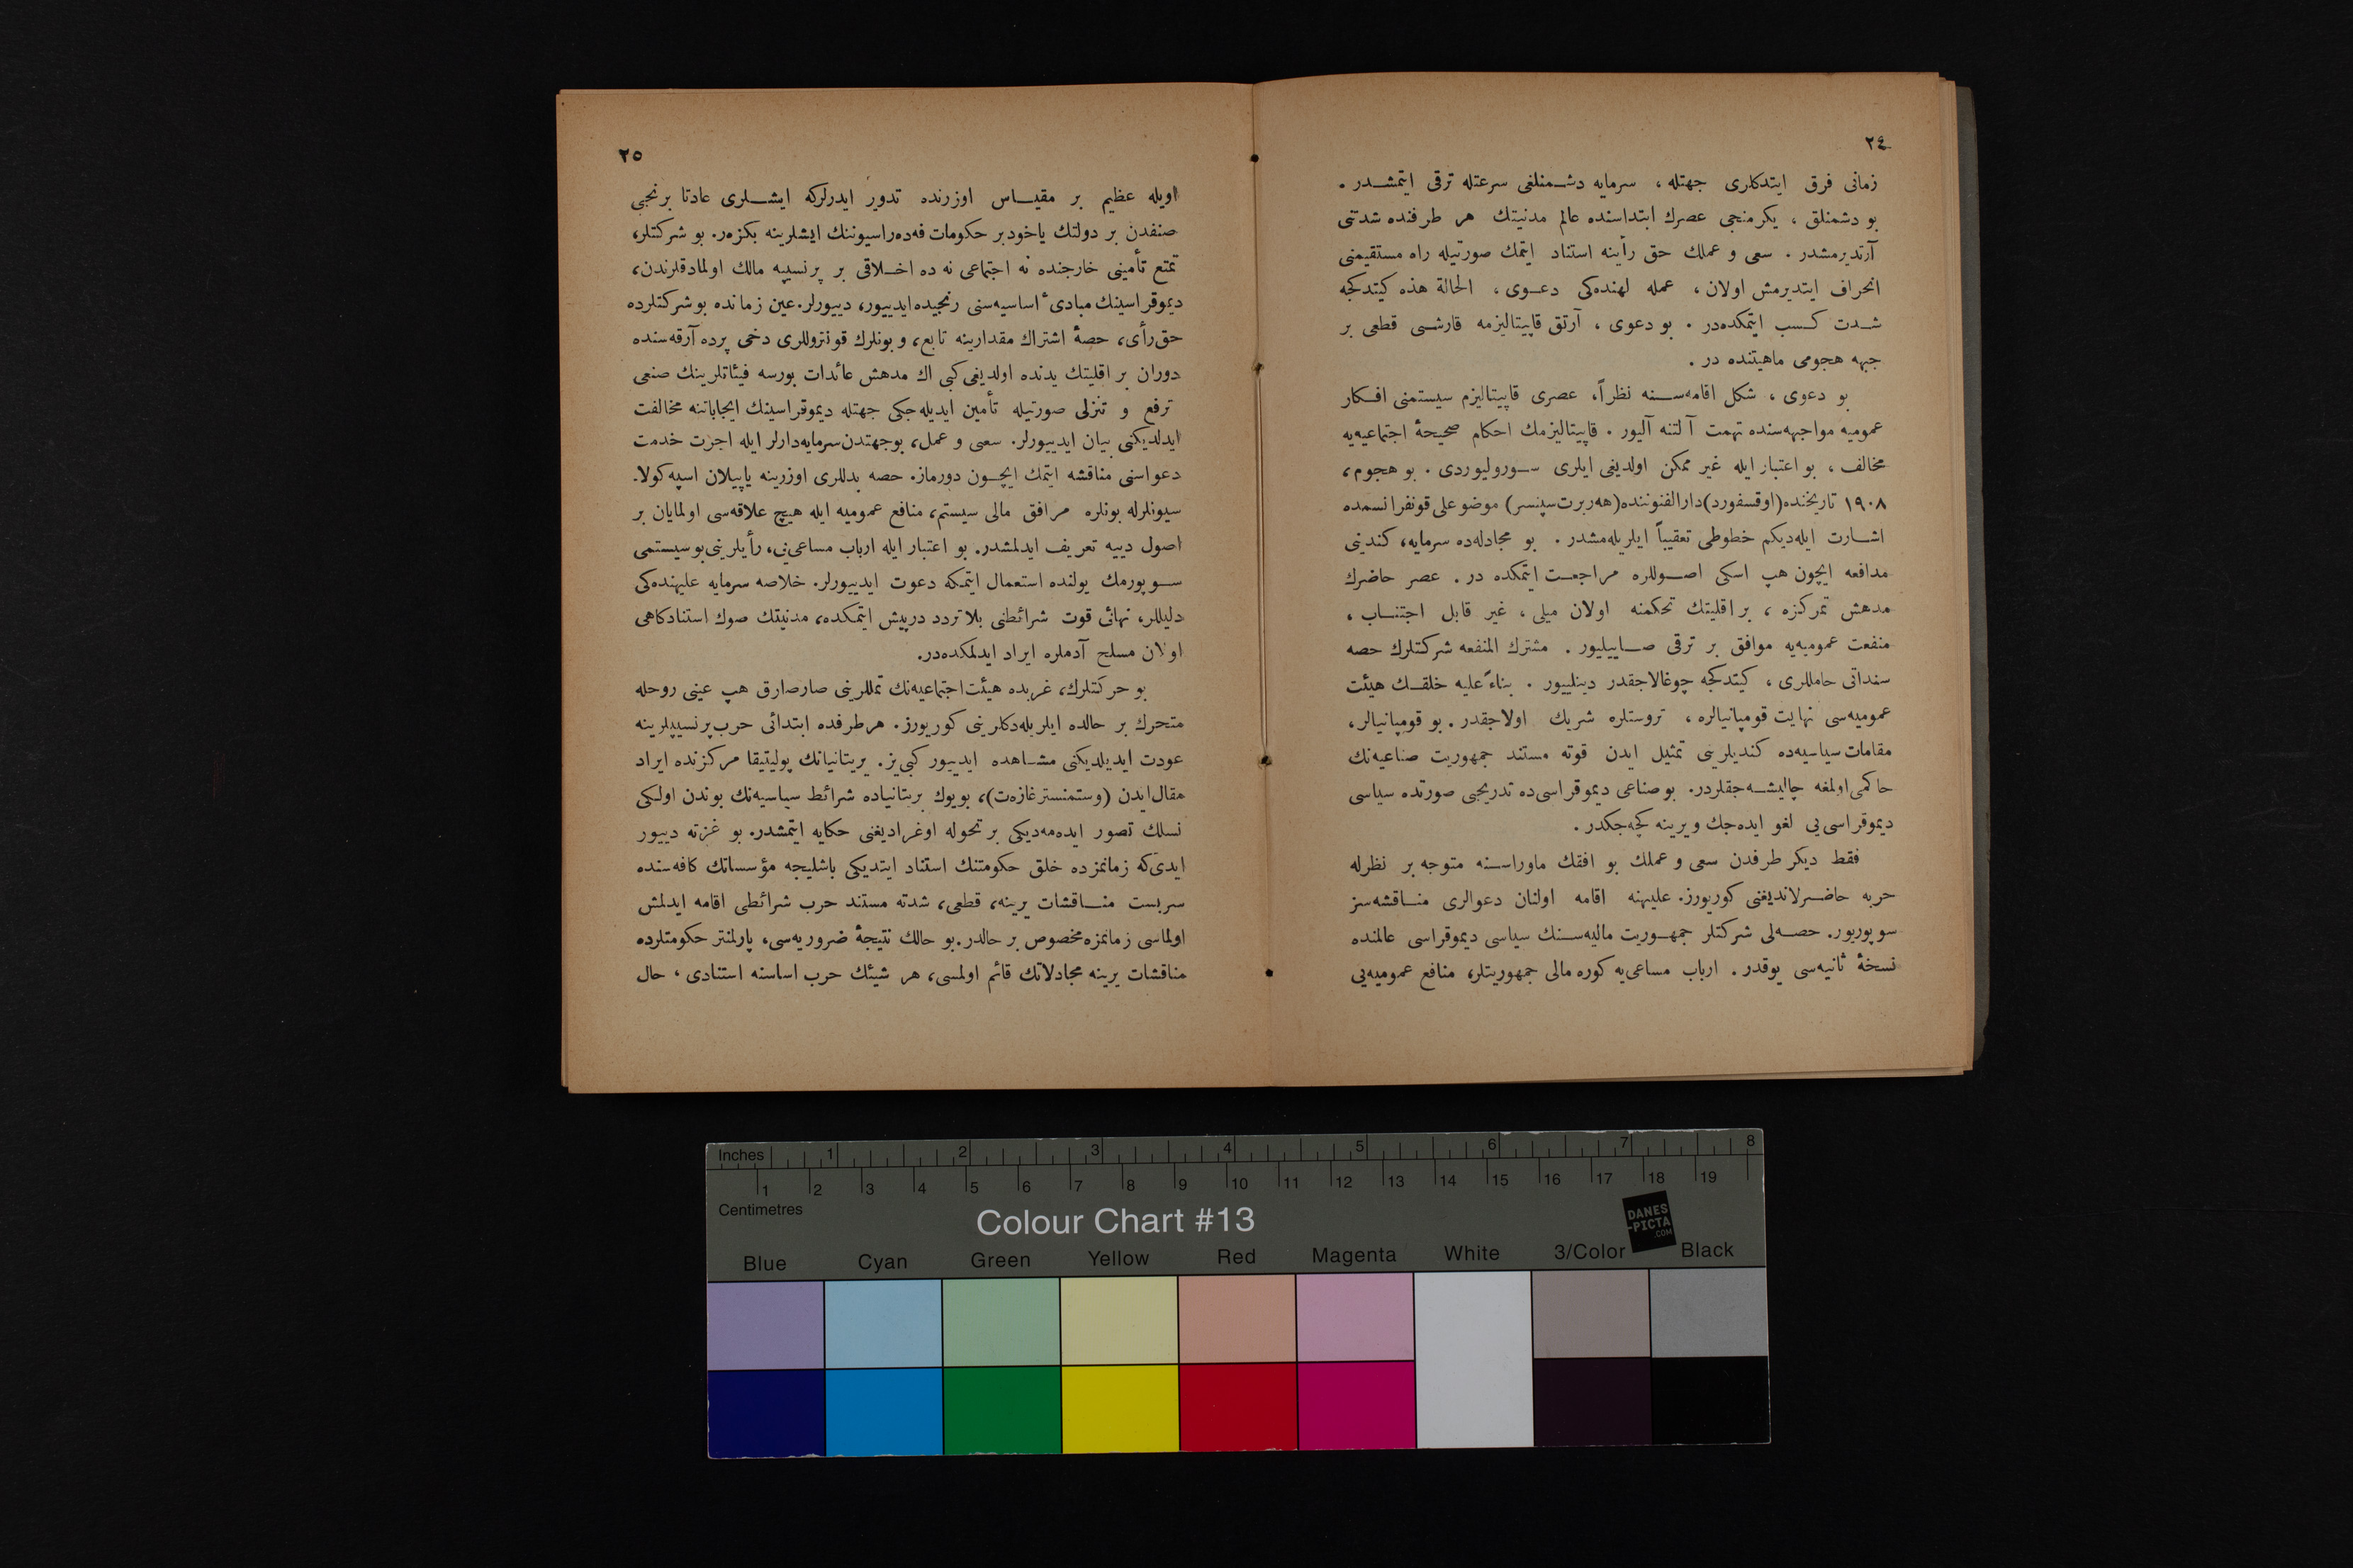 ٢٤
زمانی فرق ایتدکاری جهتله ، سرمایه دشـمنلغی سرعتله ترقی ایتمشـدر .
بو دشمنلق ، یکرمنجی عصرك ابتداسنده عالم مدنیتك هر طرفنده شدتنی
آرتدیرمشدر . سعی و عملك حق رأینه استناد ایتمك صورتیله راه مستقیمنی
انحراف ایتدیرمش اولان ، عمله لهنده‌کی دعـوی ، الحالة هذه کیتدکجه
شـدت کـسب ایتمکده‌در . بو دعوی ، آرتق قاپیتالیزمه قارشـی قطعی بر
جبهه هجومی ماهیتنده در .
بو دعوی ، شکل اقامه‌سـنه نظراً، عصری قاپیتالیزم سیستمنی افـکار
عمومیه مواجهه‌سنده تهمت آلتنه آلیور . قاپیتالیزمك احکام صحیحهٔ اجتماعیه‌یه
مخالف ، بو اعتبار ایله غیر ممکن اولدیغی ایلری سـورولیوردی . بو هجوم ،
١٩٠٨ تاریخنده (اوقسفورد) دارالفنوننده (هه‌ربرت سپنسر) موضوعلی قونفرانسمده
اشـارت ایله‌دیکم خطوطی تعقیباً ایلریله‌مشدر . بو مجادله‌ده سرمایه، کندینی
مدافعه ایچون هپ اسکی اصـوللره مراجعـت ایتمکده در . عصر حاضرك
مدهش تمرکزه ، بر اقلیتك تحکمنه اولان میلی ، غیر قابل اجتنـاب ،
منفعت عمومیه‌یه موافق بر ترقی صـاییلیور . مشترك المنفعه شرکتلرك حصه
سنداتی حاملاری ، کیتدکجه چوغالاجقدر دینلییور . بناءً علیه خلقـك هیئت
عمومیه‌سی نهایت قومپانیالره ، تروستلره شریك اولاجقدر . بو قومپانیالر،
مقامات سیاسیه‌ده کندیلرینی تمثیل ایدن قوته مستند جمهوریت صناعیه‌نك
حاکمی اولمغه چالیشـه‌جقلردر. بو صناعی دیموقراسی‌ده تدریجی صورتده سیاسی
دیموقراسی‌یی لغو ایده‌جك و یرینه کچه‌جکدر .
فقط دیکر طرفدن سعی و عملك بو افقك ماوراسـنه متوجه بر نظرله
حربه حاضـرلاندیغنی کوریورز. علیهنه اقامه اولنان دعوالری منـاقشه‌سز
سوپوریور. حصـه‌لی شرکتلر جمهـوریت مالیه‌سـنك سیاسی دیموقراسی عالمنده
نسخهٔ ثانیه‌سی یوقدر . ارباب مساعی‌یه کوره مالی جمهوریتلر، منافع عمومیه‌یی
٢٥
اویله عظیم بر مقیـاس اوزرنده تدویر ایدرلرکه ایشـلری عادتا برنجی
صنفدن بر دولتك یاخود بر حکومات فه‌ده‌راسیوننك ایشلرینه بکزه‌ر. بو شرکتلر،
تمتع تأمینی خارجنده نه اجتماعی نه ده اخـلاقی بر پرنسیپه مالك اولمادقلرندن،
دیموقراسینك مبادیٔ اساسیه‌سنی رنجیده ایدییور، دییورلر. عین زمانده بو شرکتلرده
حق رأی، حصهٔ اشتراك مقدارینه تابع، و بونلرك قونتروللری دخی پرده آرقه‌سنده
دوران بر اقلیتك یدنده اولدیغی کبی اك مدهش عائدات بورسه فیئاتلرینك صنعی
ترفع و تنزلی صورتیله تأمین ایدیله‌جکی جهتله دیموقراسینك ایجاباتنه مخالفت
ایدلدیکنی بیان ایدییورلر. سعی و عمل، بو جهتدن سرمایه‌دارلر ایله اجرت خدمت
دعواسنی مناقشه ایتمك ایچـون دورماز. حصه بدللری اوزرینه یاپیلان اسپه‌کولا-
سیونلرله بونلره مرافق مالی سیستم، منافع عمومیه ایله هیچ علاقه‌سی اولمایان بر
اصول دییه تعریف ایدلمشدر. بو اعتبار ایله ارباب مساعی‌نی، رأیلرینی بو سیستمی
سـوپورمك یولنده استعمال ایتمکه دعوت ایدییورلر. خلاصه سرمایه علیهنده‌کی
دلیللر، نهائی قوت شرائطنی بلا تردد درپیش ایتمکده، مدنیتك صوك استنادکاهی
اولان مسلح آدملره ایراد ایدلمکده‌در.
بو حرکتلرك، غربده هیئت اجتماعیه‌نك تمللرینی صارصارق هپ عینی روحله
متحرك بر حالده ایلریله‌دکلرینی کوریورز. هر طرفده ابتدائی حرب پرنسیپلرینه
عودت ایدیلدیکنی مشـاهده ایدییور کبی‌یز. بریتانیانك پولیتیقا مرکزنده ایراد
مقال ایدن (وستمنستر غازه‌ت)، بویوك بریتانیاده شرائط سیاسیه‌نك بوندن اولـکی
نسلك تصور ایده‌مه‌دیکی بر تحوله اوغرادیغنی حکایه ایتمشدر. بو غزته دییور
ایدی‌که زمانمزده خلق حکومتنك استناد ایتدیکی باشلیجه مؤسساتك کافه‌سنده
سربست منـاقشات یرینه، قطعی، شدته مستند حرب شرائطی اقامه ایدلمش
اولماسی زمانمزه مخصوص بر حالدر. بو حالك نتیجهٔ ضروریه‌سی، پارلمنتر حکومتلرده
مناقشات یرینه مجادلاتك قائم اولمسی، هر شیئك حرب اساسنه استنادی ، حال
Inches 1 2 3 4 5 6 7 8
1 2 3 4 5 6 7 8 9 10 11 12 13 14 15 16 17 18 19
Centimetres
Colour Chart #13
DANES
-PICTA
.COM
Blue Cyan Green Yellow Red Magenta White 3/Color Black